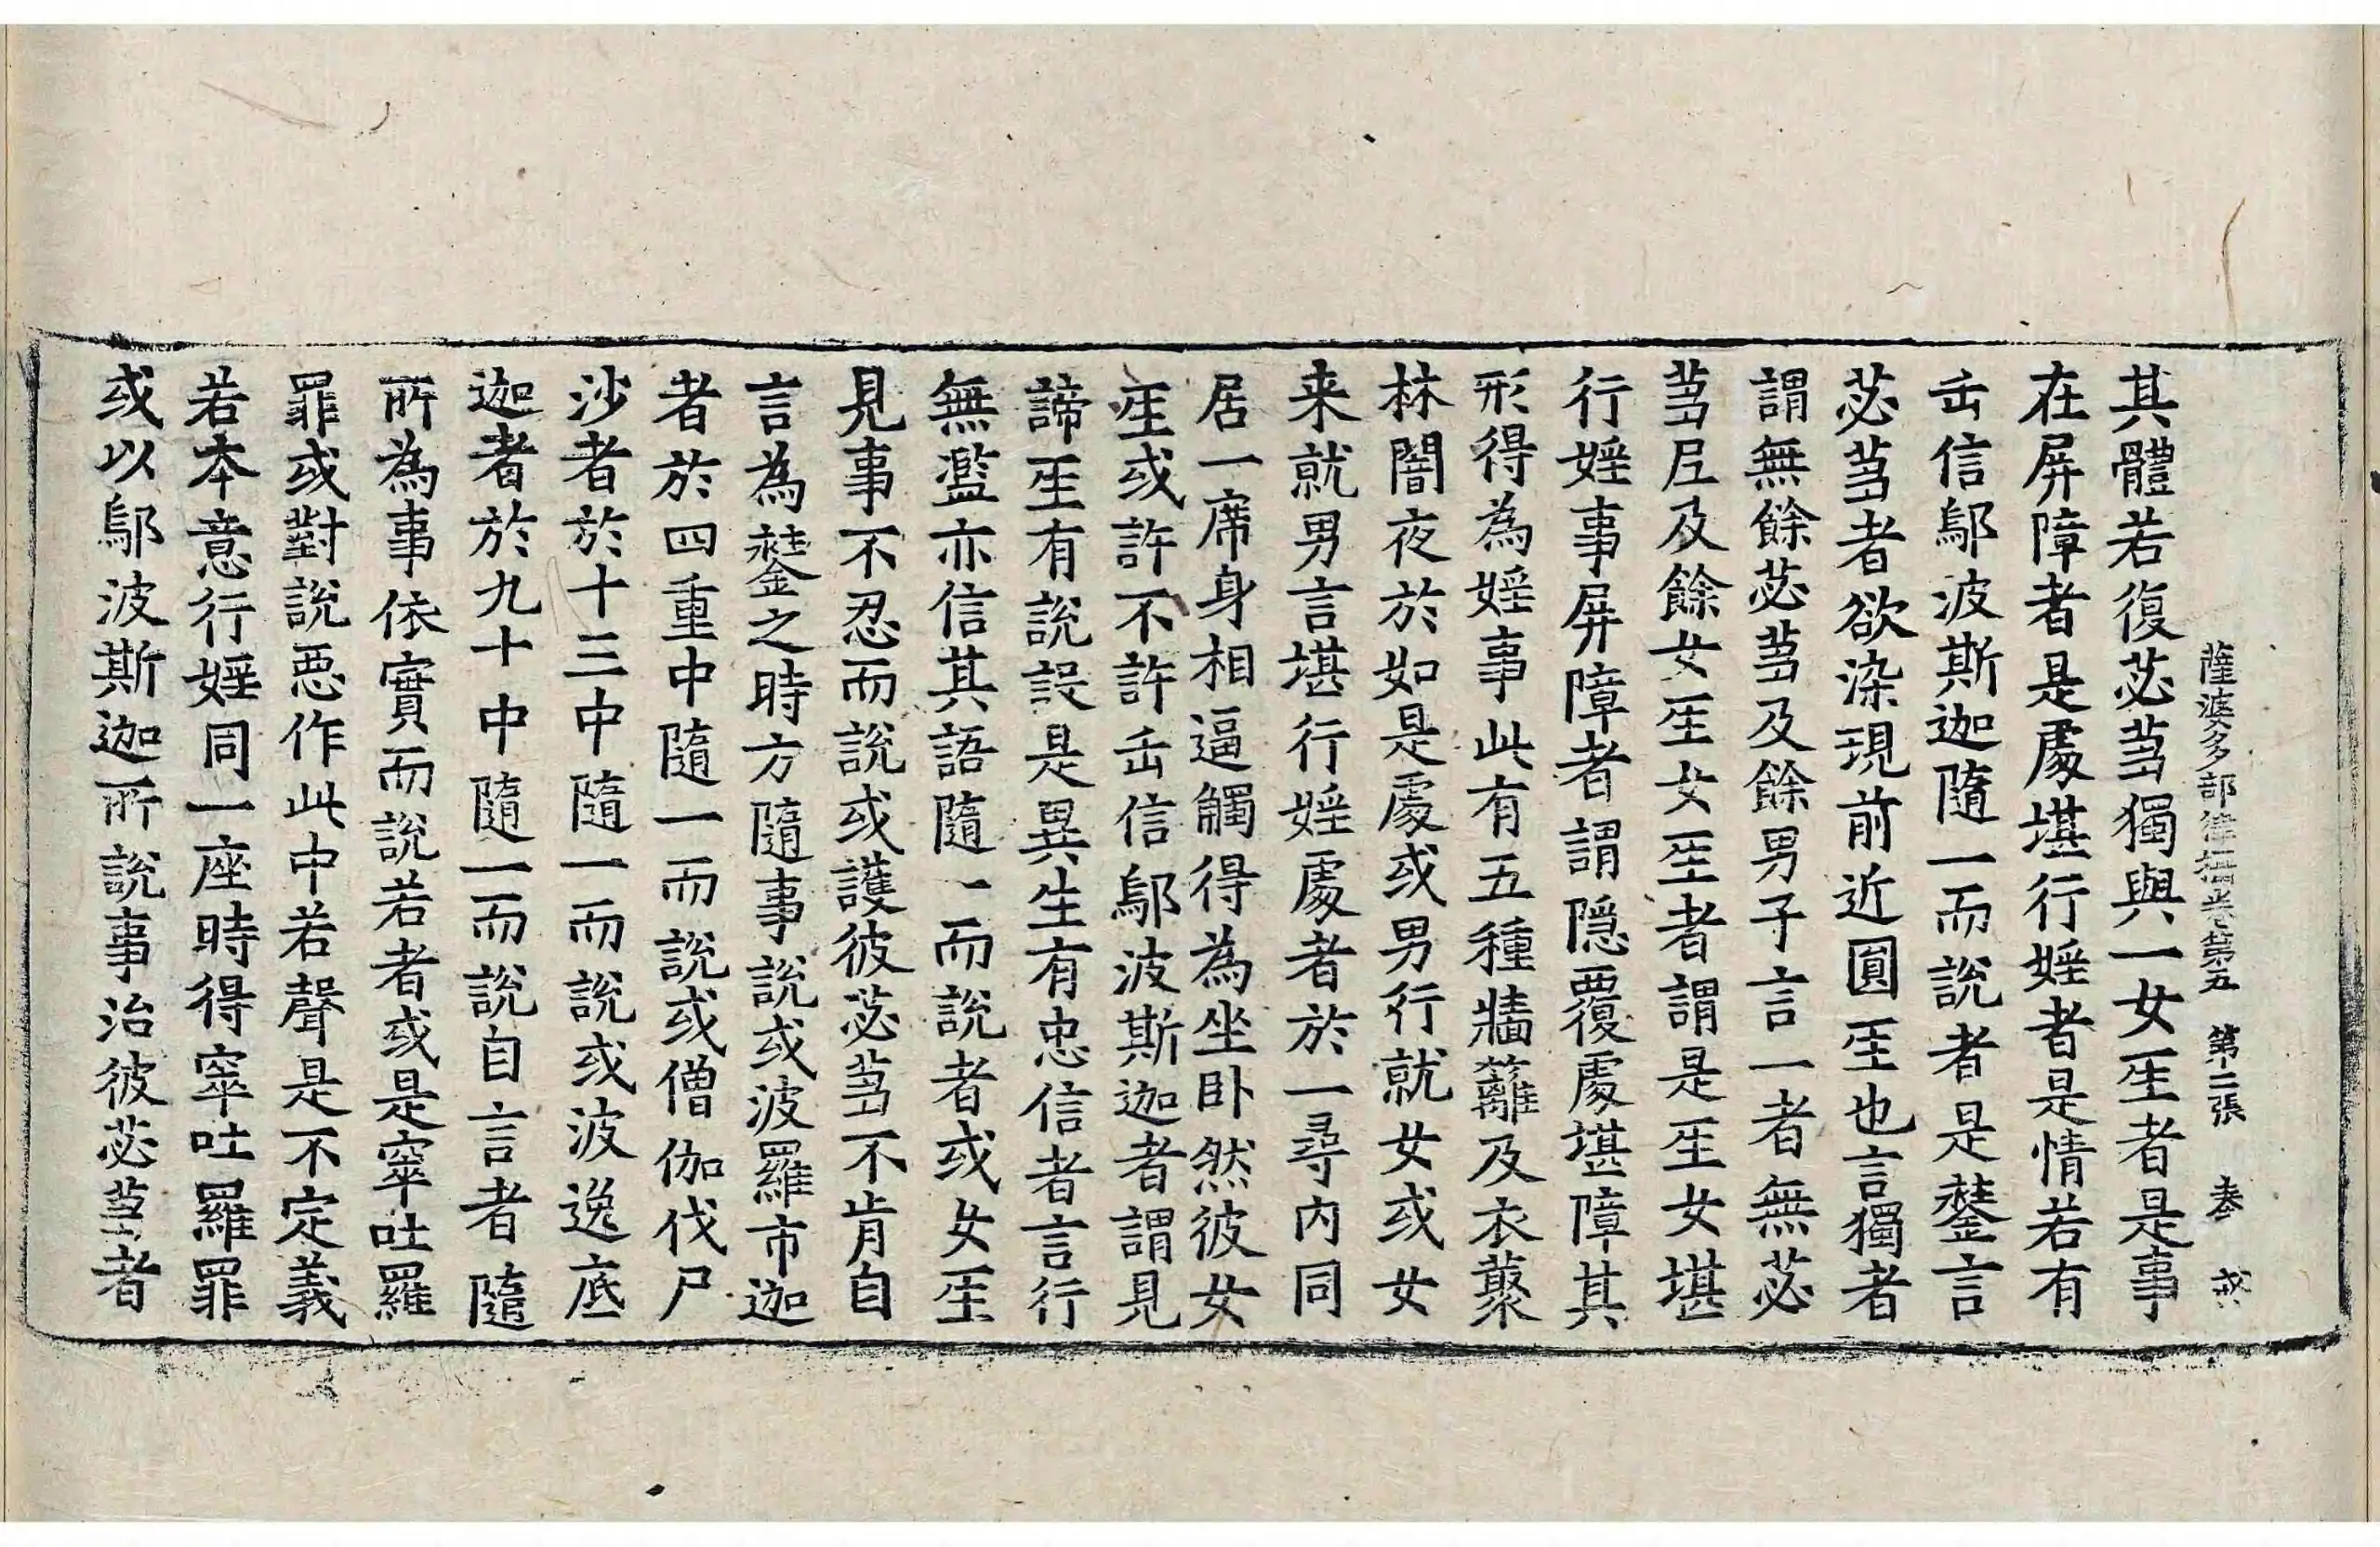 薩婆多部律攝卷第五　第二張　叅
其體若復苾芻獨與一女𤯔者是事
在屏障者是處堪行婬者是情若有
𠙺信鄔波斯迦隨一而說者是𨭻言
苾芻者欲染現前近圓𤯔也言獨者
謂無餘苾芻及餘男子言一者無苾
芻尼及餘女𤯔女𤯔者謂是𤯔女堪
行婬事屏障者謂隱覆處堪障其
形得為婬事此有五種牆籬及衣藂
林闇夜於如是處或男行就女或女
来就男言堪行婬處者於一尋內同
居一席身相逼觸得為坐卧然彼女
𤯔或許不許𠙺信鄔波斯迦者謂見
諦𤯔有說設是異生有忠信者言行
無濫亦信其語隨一而說者或女𤯔
見事不忍而說或護彼苾芻不肯自
言為𨭻之時方隨事說或波羅市迦
者於四重中隨一而說或僧伽伐尸
沙者於十三中隨一而說或波逸底
迦者於九十中隨一而說自言者隨
所為事依實而說若者或是窣吐羅
罪或對說惡作此中若聲是不定義
若本意行婬同一座時得窣吐羅罪
或以鄔波斯迦所說事治彼苾芻者